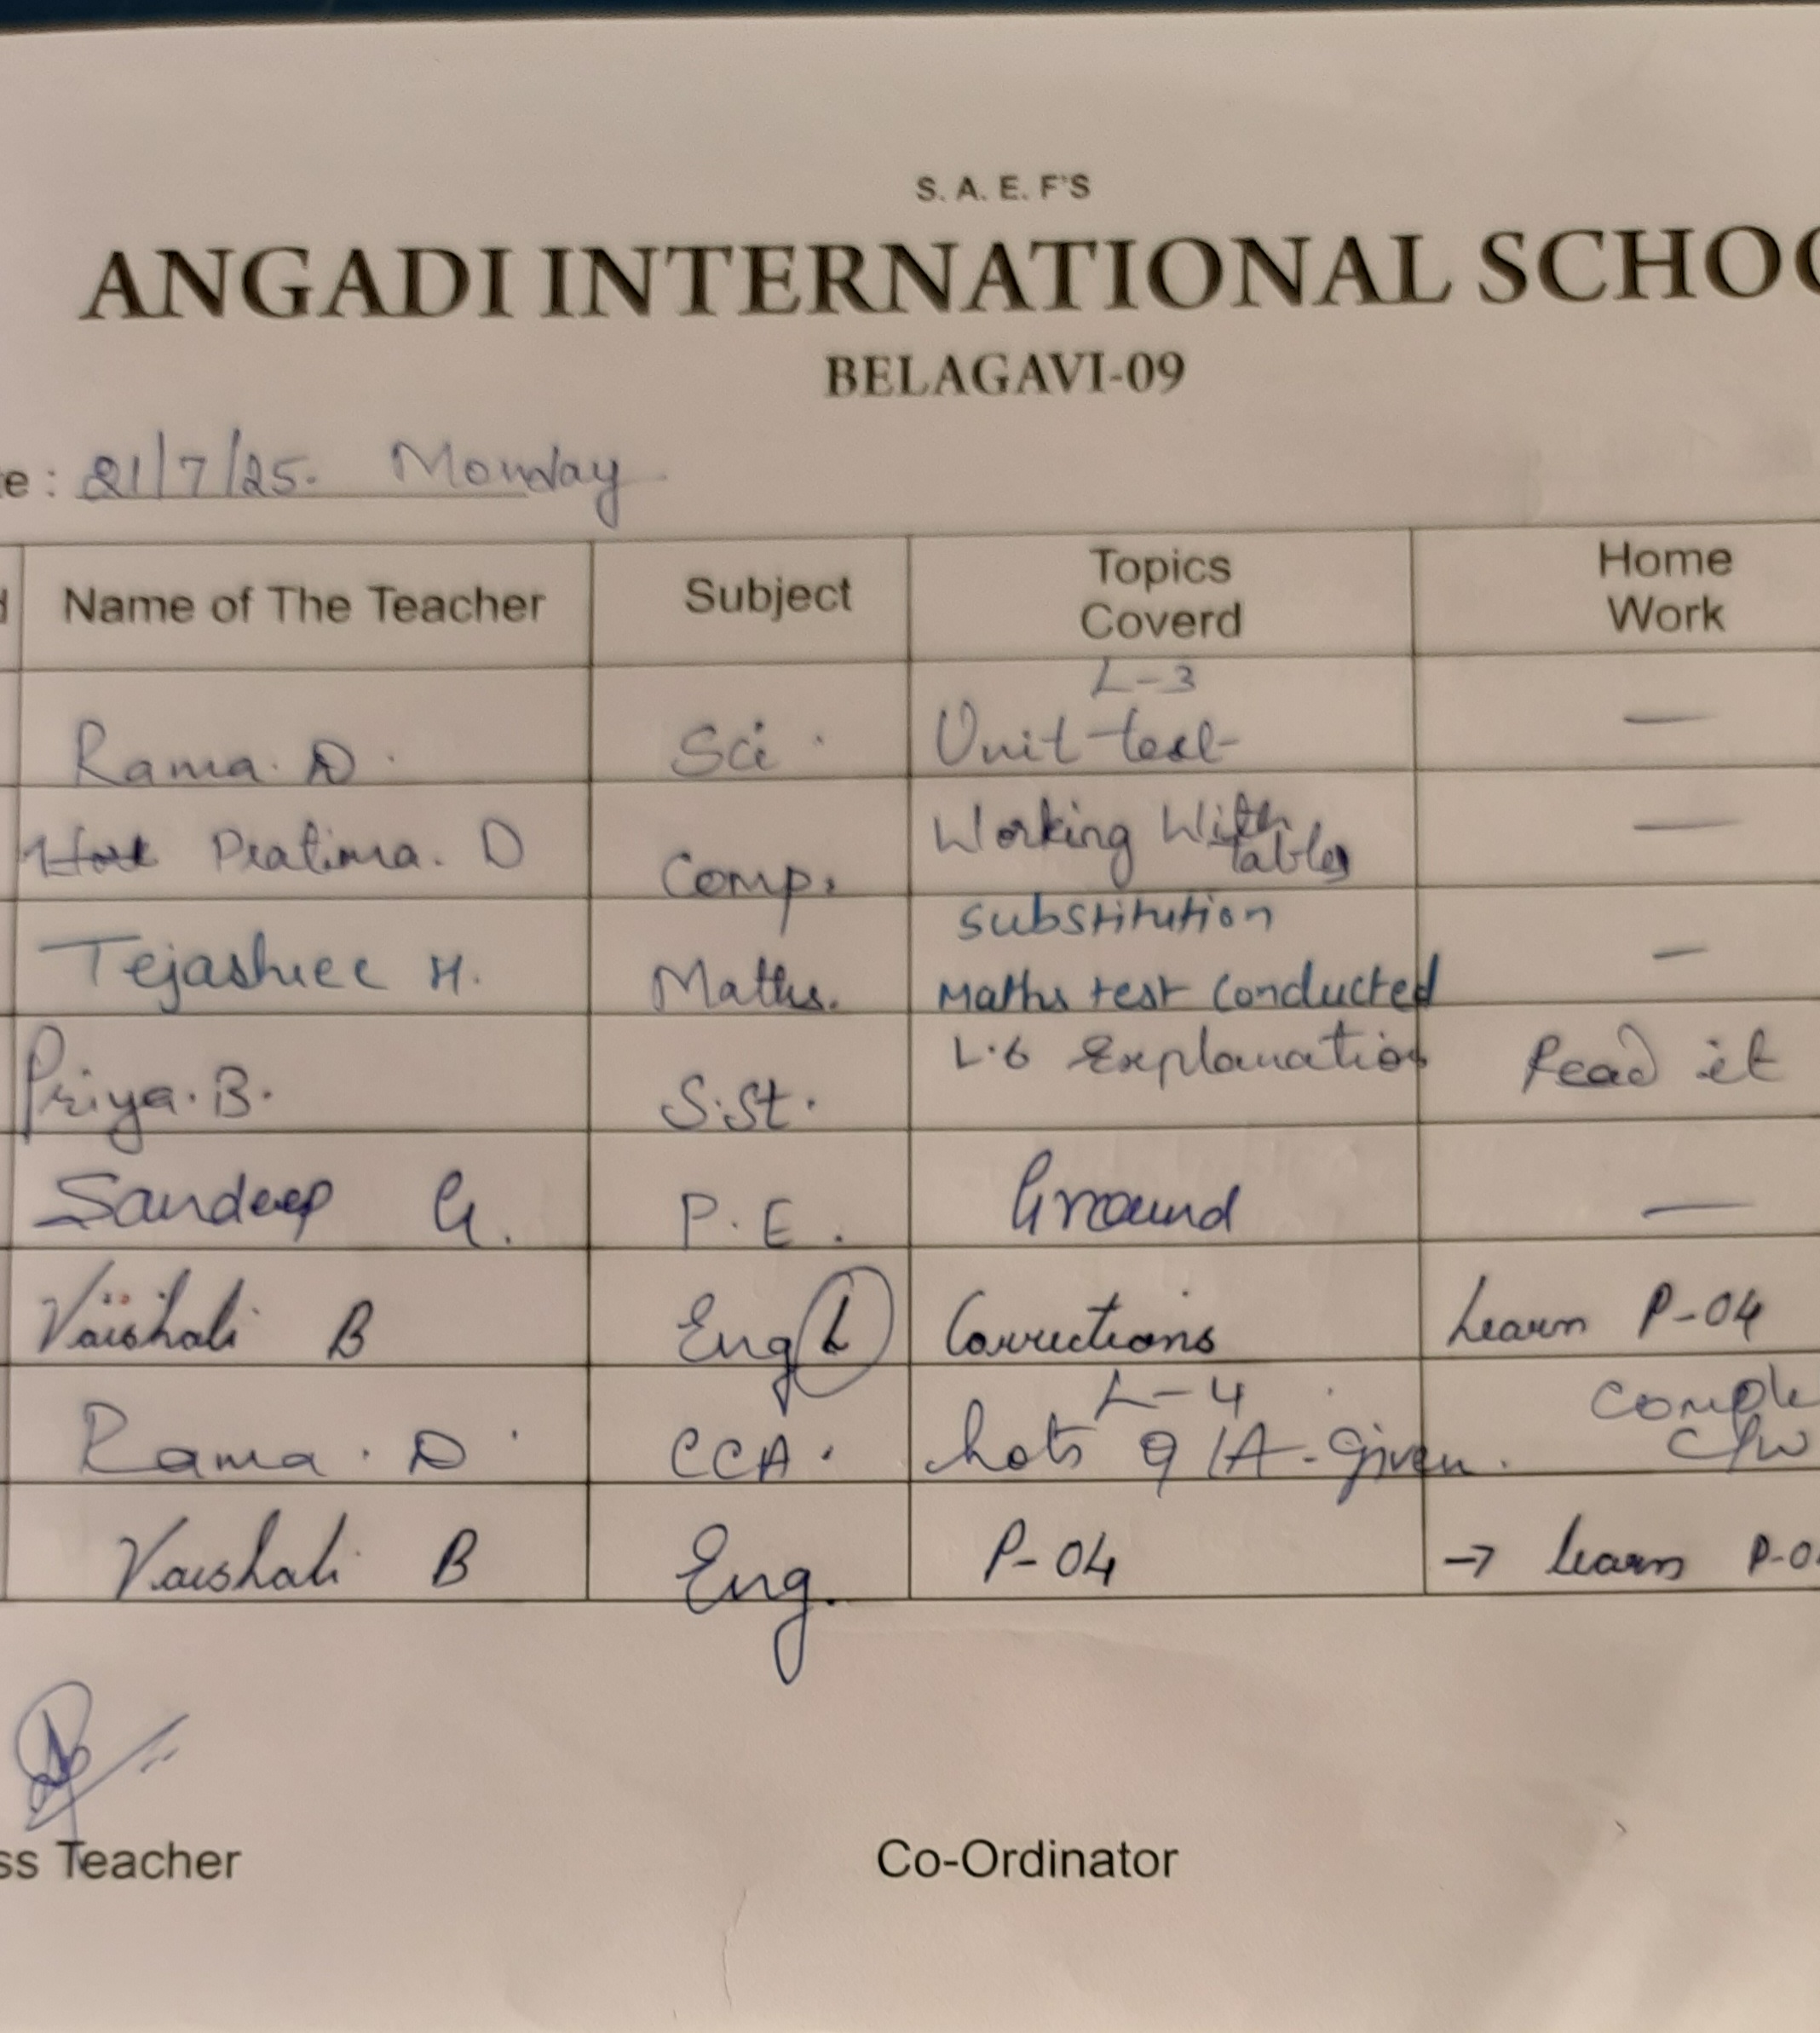 S. A. E. F'S
ANGADI INTERNATIONAL SCHOO
BELAGAVI-09
e : 21/7/25. Monday
d Name of The Teacher Subject Topics Coverd Home Work
Rama. D. Sci. L-3 Unit test —
Pratima. D Comp. Working With Tables —
Tejashree H. Maths. substitution Maths test conducted —
Priya. B. S.St. L.6 Explanation Read it
Sandeep G. P.E. Ground —
Vaishali B Eng L Corrections Learn P-04
Rama. D. CCA. L-4 hots Q/A given. Comple C/w
Vaishali B Eng. P-04 → Learn P-0
ss Teacher Co-Ordinator